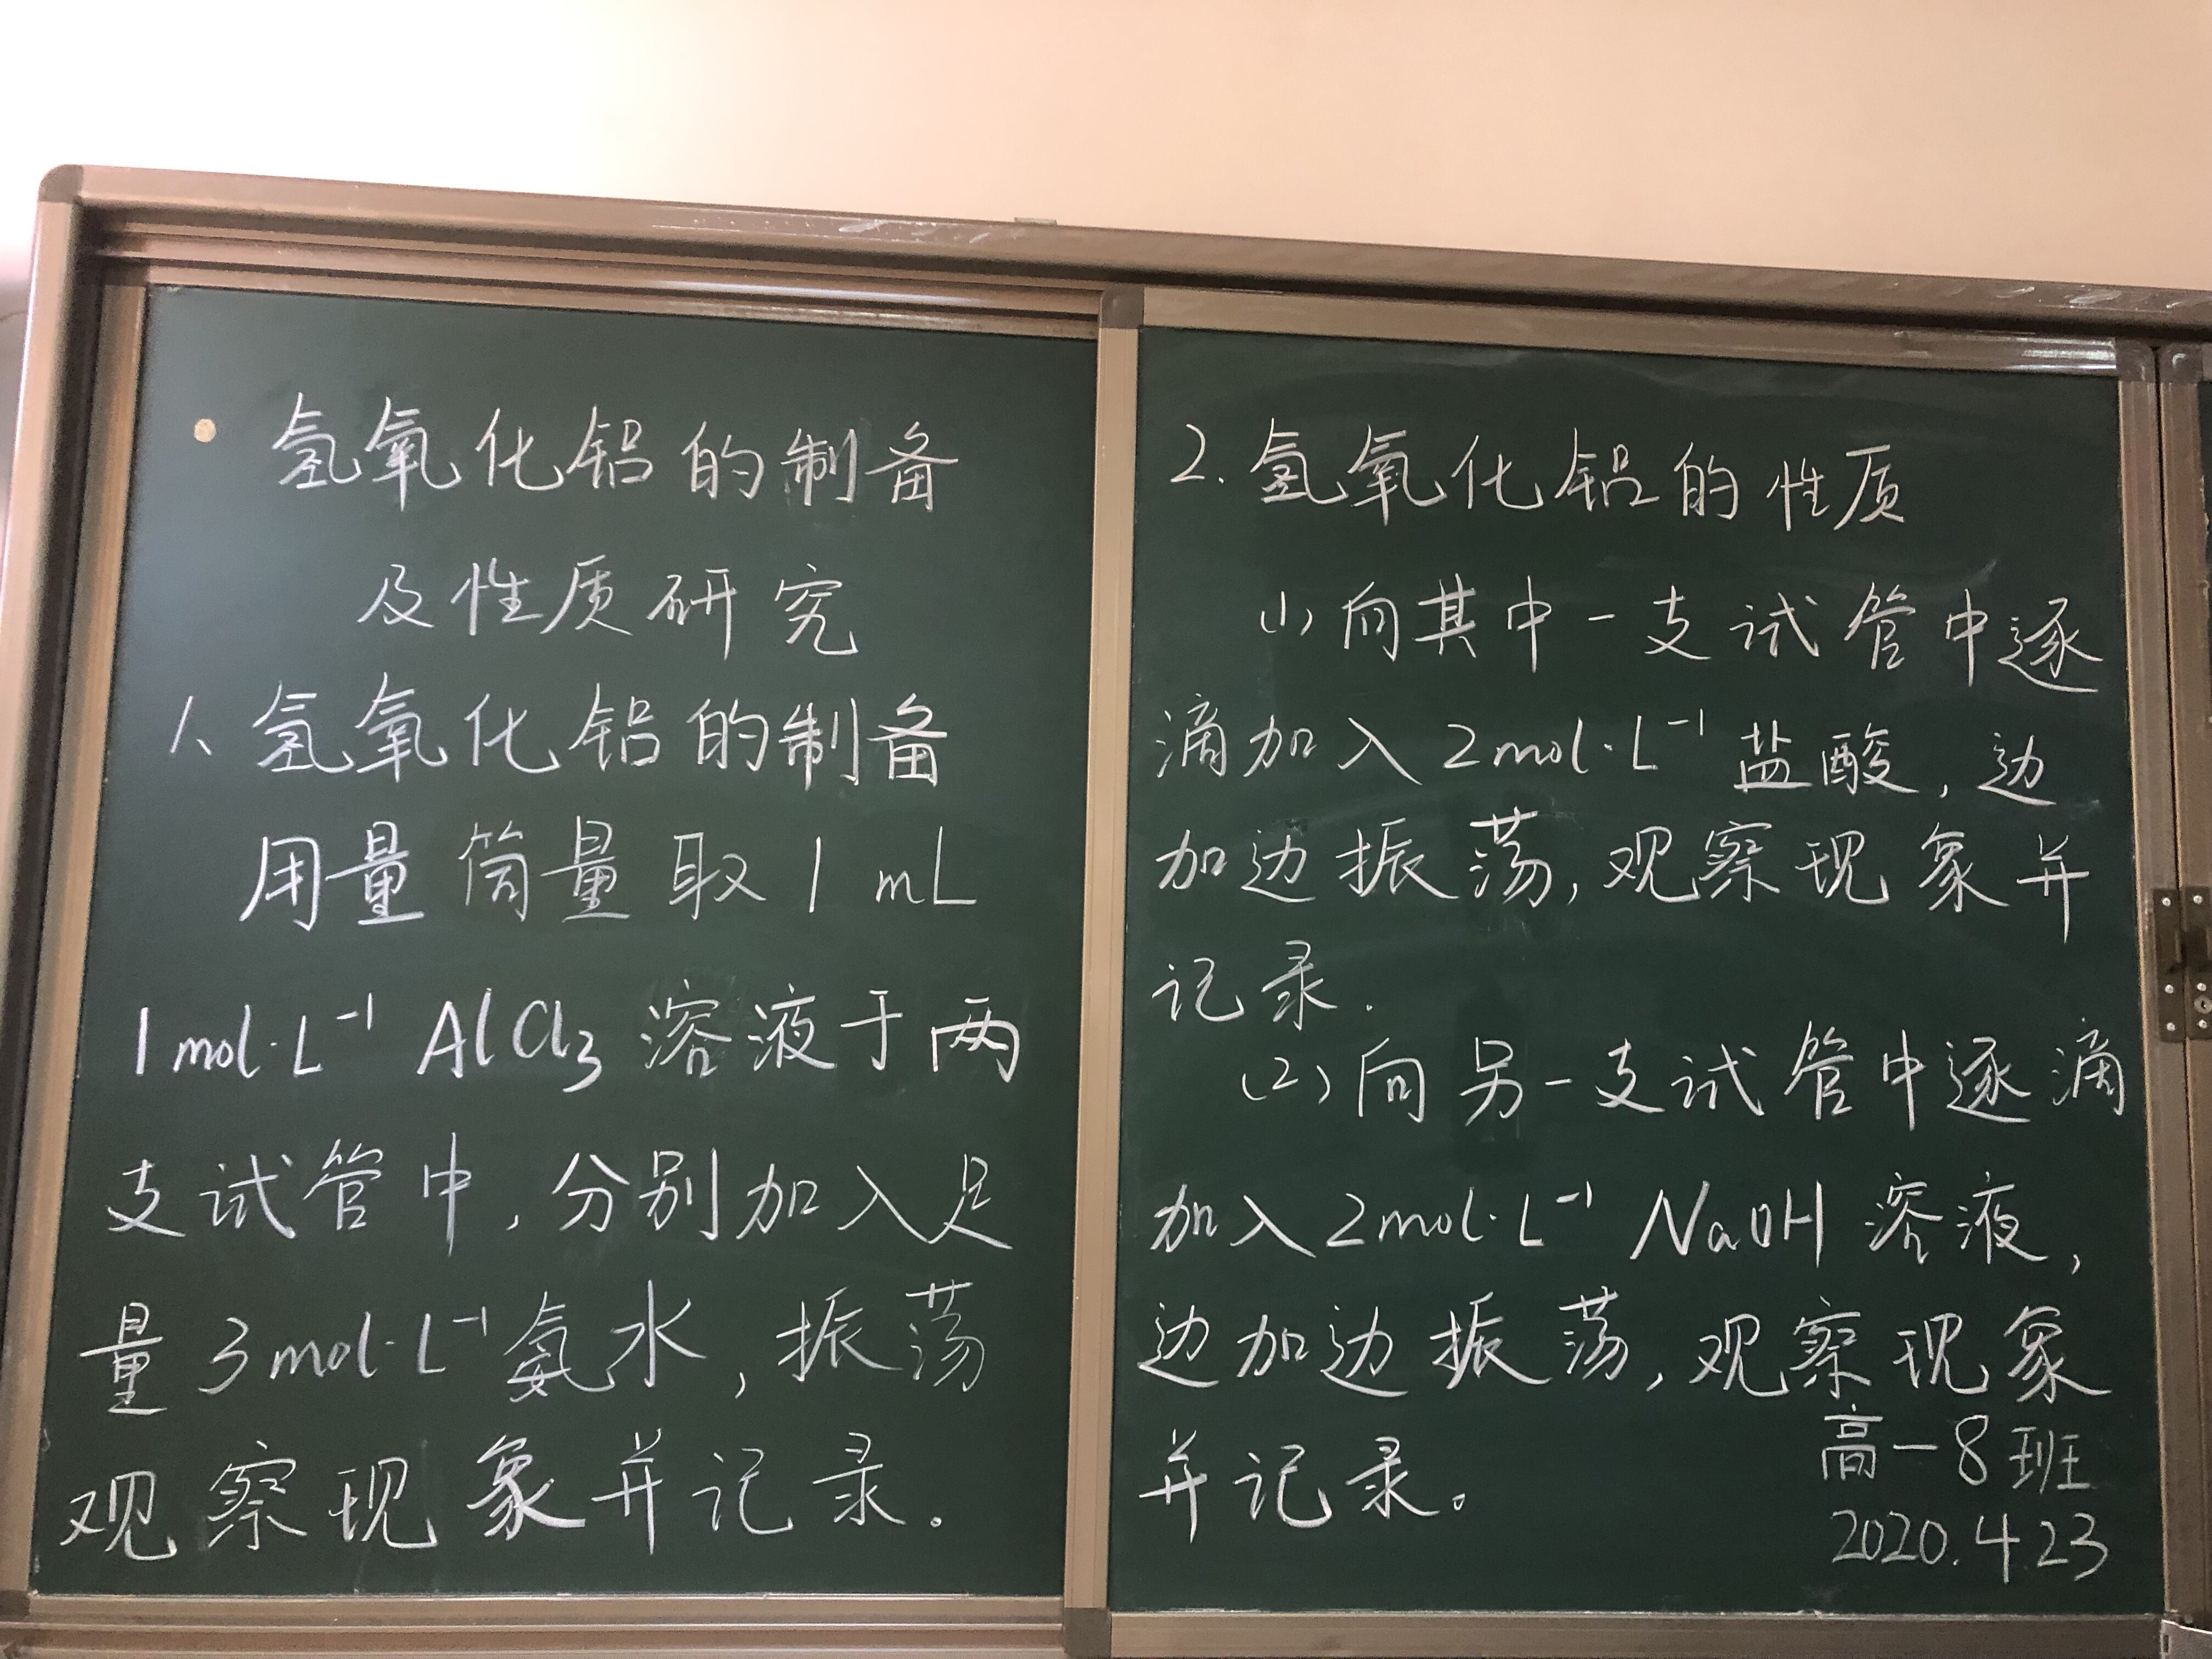 氢氧化铝的制备
及性质研究
1、氢氧化铝的制备
用量筒量取1 mL
1mol·L⁻¹ AlCl₃ 溶液于两
支试管中,分别加入足
量3mol·L⁻¹氨水,振荡
观察现象并记录。
2.氢氧化铝的性质
(1)向其中一支试管中逐
滴加入2mol·L⁻¹盐酸,边
加边振荡,观察现象并
记录.
(2)向另一支试管中逐滴
加入2mol·L⁻¹ NaOH 溶液,
边加边振荡,观察现象
并记录。
高一8班
2020.4.23